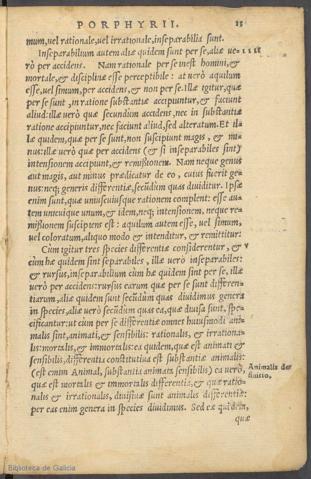 PORPHYRII. 15
mum, vel rationale, vel irrationale, inseparabilia sunt.
Inseparabilium autem aliæ quidem sunt per se, aliæ ve= 1 2 1 8
rò per accidens. Nam rationale per se inest homini, &
mortale, & disciplinæ esse perceptibile: at verò aquilum
esse, vel simum, per accidens, & non per se. Illæ igitur, quæ
per se sunt, in ratione substantiæ accipiuntur, & faciunt
aliud: illæ verò quæ secundum accidens, nec in substantiæ
ratione accipiuntur, nec faciunt aliud, sed alteratum. Et il=
læ quidem, quæ per se sunt, non suscipiunt magis, & mi=
nus: illæ verò quæ per accidens (& si inseparabiles sint)
intensionem accipiunt, & remißionem. Nam neque genus
aut magis, aut minus prædicatur de eo, cuius fuerit ge=
nus: neq; generis differentiæ, secũdùm quas diuiditur. Ipsæ
enim sunt, quæ vniuscuiusque rationem complent: esse au=
tem vnicuique vnum, & idem, neq; intensionem, neque re=
mißionem suscipiens est: aquilum autem esse, vel simum,
vel coloratum, aliquo modo & intenditur, & remittitur.
Cùm igitur tres species differentiæ considerentur, & v
cùm hæ quidem sint separabiles, illæ verò inseparabiles:
& rursus, inseparabilium cùm hæ quidem sint per se, illæ
verò per accidens: rursus earum quæ per se sunt differen=
tiarum, aliæ quidem sunt secũdùm quas diuidimus genera
in species, aliæ verò secũdùm quas ea, quæ diuisa sunt, spe=
cificantur: vt cùm per se differentiæ omnes huiusmodi ani=
malis sint, animati, & sensibilis: rationalis, & irrationa=
lis: mortalis, & immortalis: ea quidem, quæ est animati &
sensibilis, differentia constitutiua est substantiæ animalis:
(est enim Animal, substantia animata sensibilis) ea verò,
Animalis de=
finitio.
quæ est mortalis & immortalis differentia, & quæ ratio=
nalis & irrationalis, diuisiuæ sunt animalis differentiæ:
per eas enim genera in species diuidimus. Sed eæ quidem,
quæ
Biblioteca de Galicia